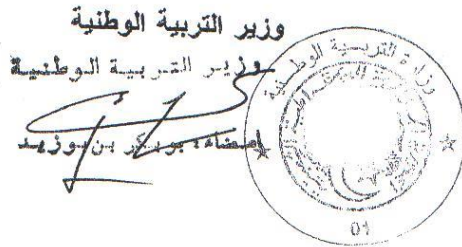 وزير التربية الوطنية
وزير التربية الوطنية
إمضاء: بوبكر بن بوزيد
وزارة التربية الوطنية
01